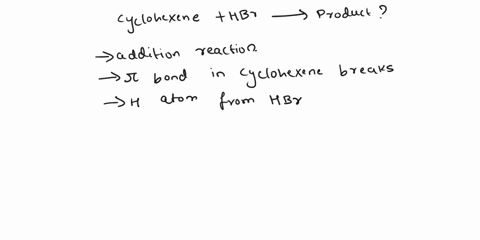 cyclohexene + HBr ⟶ Product ?
→ addition reaction
→ π bond in cyclohexene breaks
→ H atom from HBr